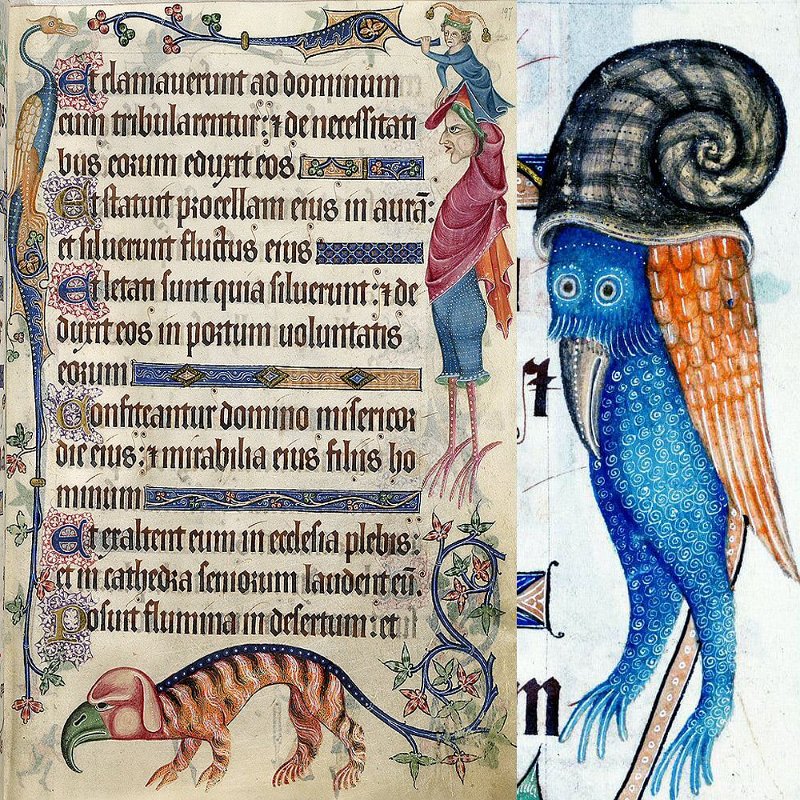 197
Et clamauerunt ad dominum
cum tribularentur: ⁊ de necessitati
bus eorum eduxit eos
Et statuit procellam eius in aurā:
et siluerunt fluctus eius
Et letati sunt quia siluerunt: ⁊ de
duxit eos in portum uoluntatis
eorum
Confiteantur domino misericor
die eius: ⁊ mirabilia eius filiis ho
minum
Et exaltent eum in ecclesia plebis:
et in cathedra seniorum laudent eū.
Posuit flumina in desertum: et
⁊
m